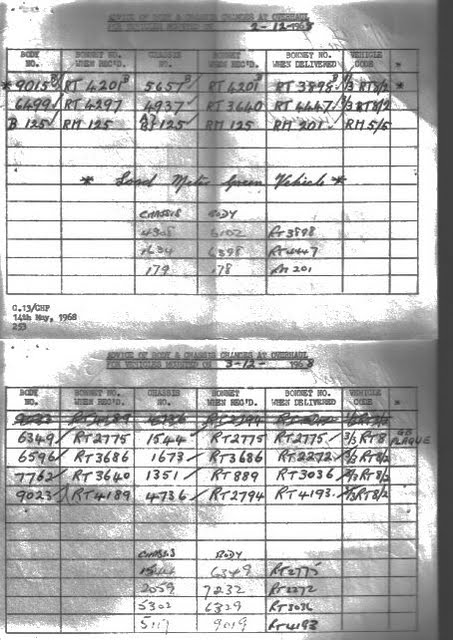 ADVICE OF BODY & CHASSIS CHANGES AT OVERHAUL
FOR VEHICLES MOUNTED ON 2-12-1968
BODY NO. BONNET NO. WHEN REC'D. CHASSIS NO. BONNET WHEN REC'D. BONNET NO. WHEN DELIVERED VEHICLE CODE *
* 9015 B RT 4201 B 5657 B RT 4201 B RT 3898 3/3 RT8/2 *
6499 RT 4297 4937 RT 3640 RT 4447 3/3 RT8/2
B 125 RM 125 125 RM 125 RM 201 RM 5/5
* Load Meter Green Vehicle *
CHASSIS BODY
4308 6102 RT3898
1634 6398 RT4447
179 178 RM 201
G.13/GHP
14th May, 1968
253
ADVICE OF BODY & CHASSIS CHANGES AT OVERHAUL
FOR VEHICLES MOUNTED ON 3-12-1968
BODY NO. BONNET NO. WHEN REC'D. CHASSIS NO. BONNET WHEN REC'D. BONNET NO. WHEN DELIVERED VEHICLE CODE *
9023 RT 4189 4736 RT 2794
6349 RT2775 1544 RT2775 RT2775 3/3 RT8 GB PLAQUE
6596 RT3686 1673 RT3686 RT2272 3/3 RT8/2
7762 RT3640 1351 RT889 RT3036 2/3 RT8/2
9023 RT4189 4736 RT2794 RT4193 3/3 RT8/2
CHASSIS BODY
1544 6349 RT2775
2059 7232 RT2272
5302 6329 RT3036
9019 RT4193